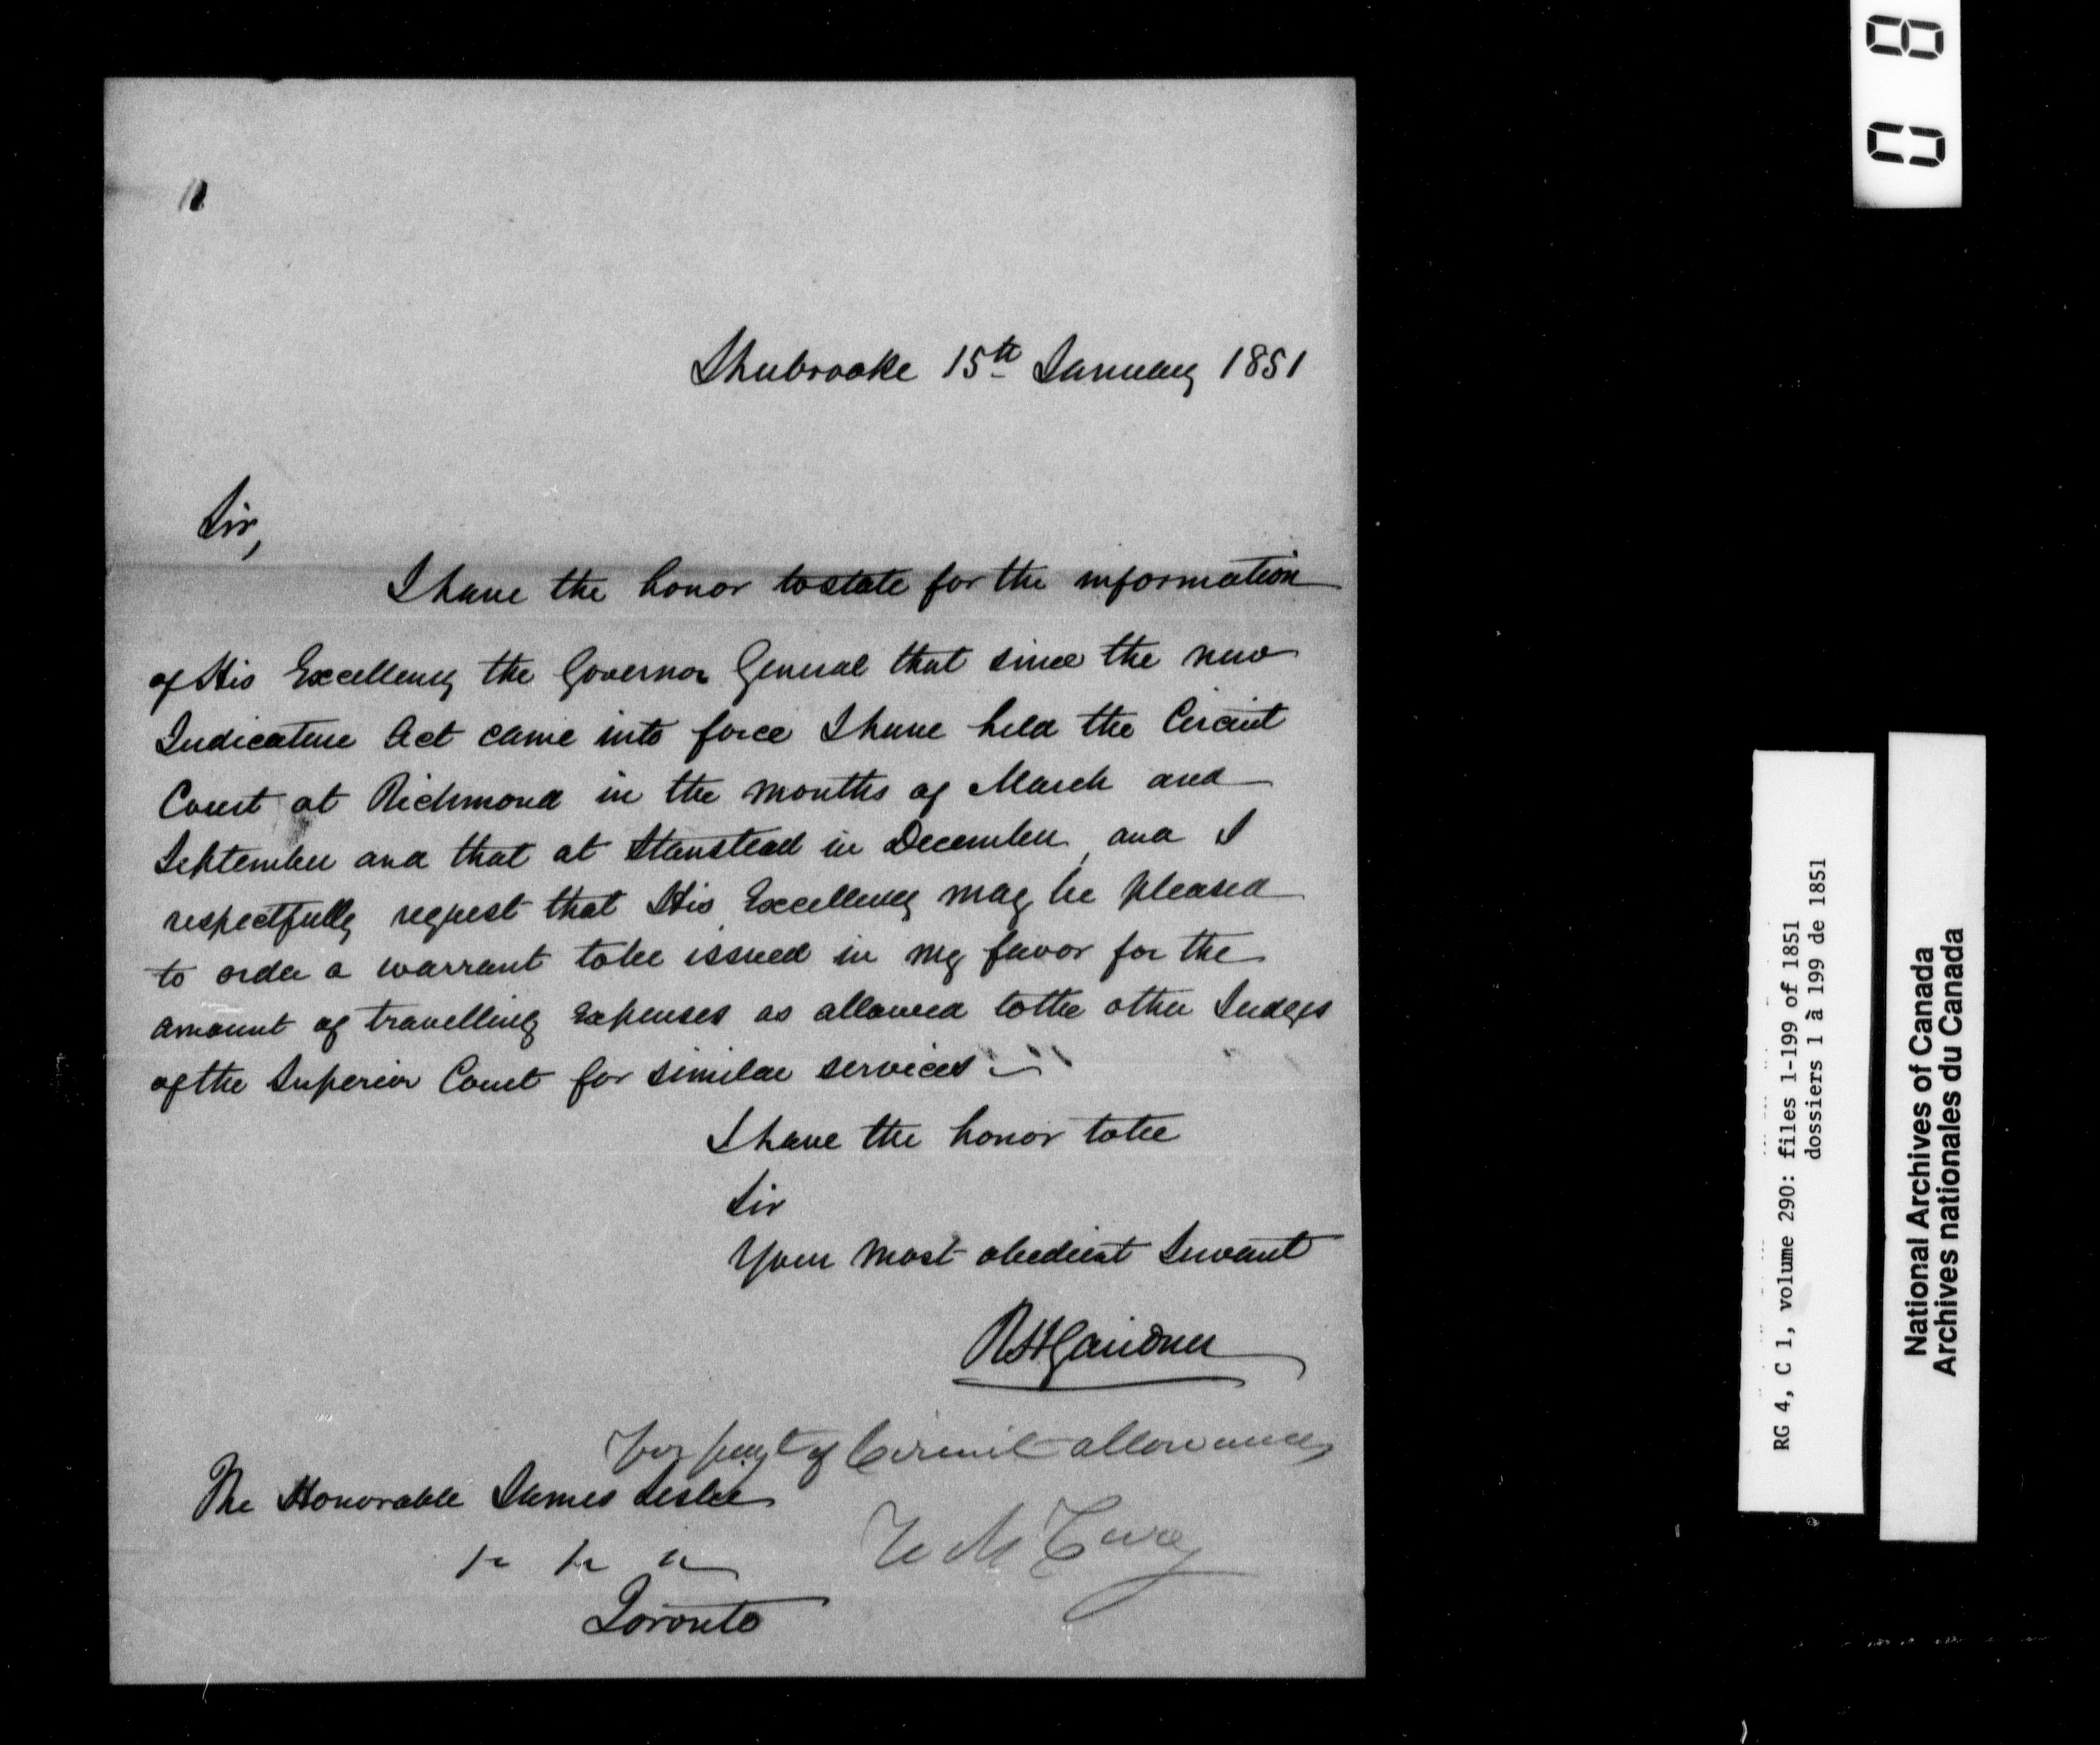 Sherbrooke 15th January 1851
Sir,
I have the honor to state for the information
of His Excellency the Governor General that since the new
Judicature Act came into force I have held the Circuit
Court at Richmond in the months of March and
September and that at Stanstead in December, and I
respectfully request that His Excellency may be pleased
to order a warrant to be issued in my favor for the
amount of travelling expenses as allowed to the other Judges
of the Superior Court for similar services.
I have the honor to be
Sir
Your most obedient Servant
RHGairdner
For payt of Circuit allowances
The Honorable James Leslie
Toronto
08
RG 4, C 1, volume 290: files 1-199 of 1851
dossiers 1 à 199 de 1851
National Archives of Canada
Archives nationales du Canada